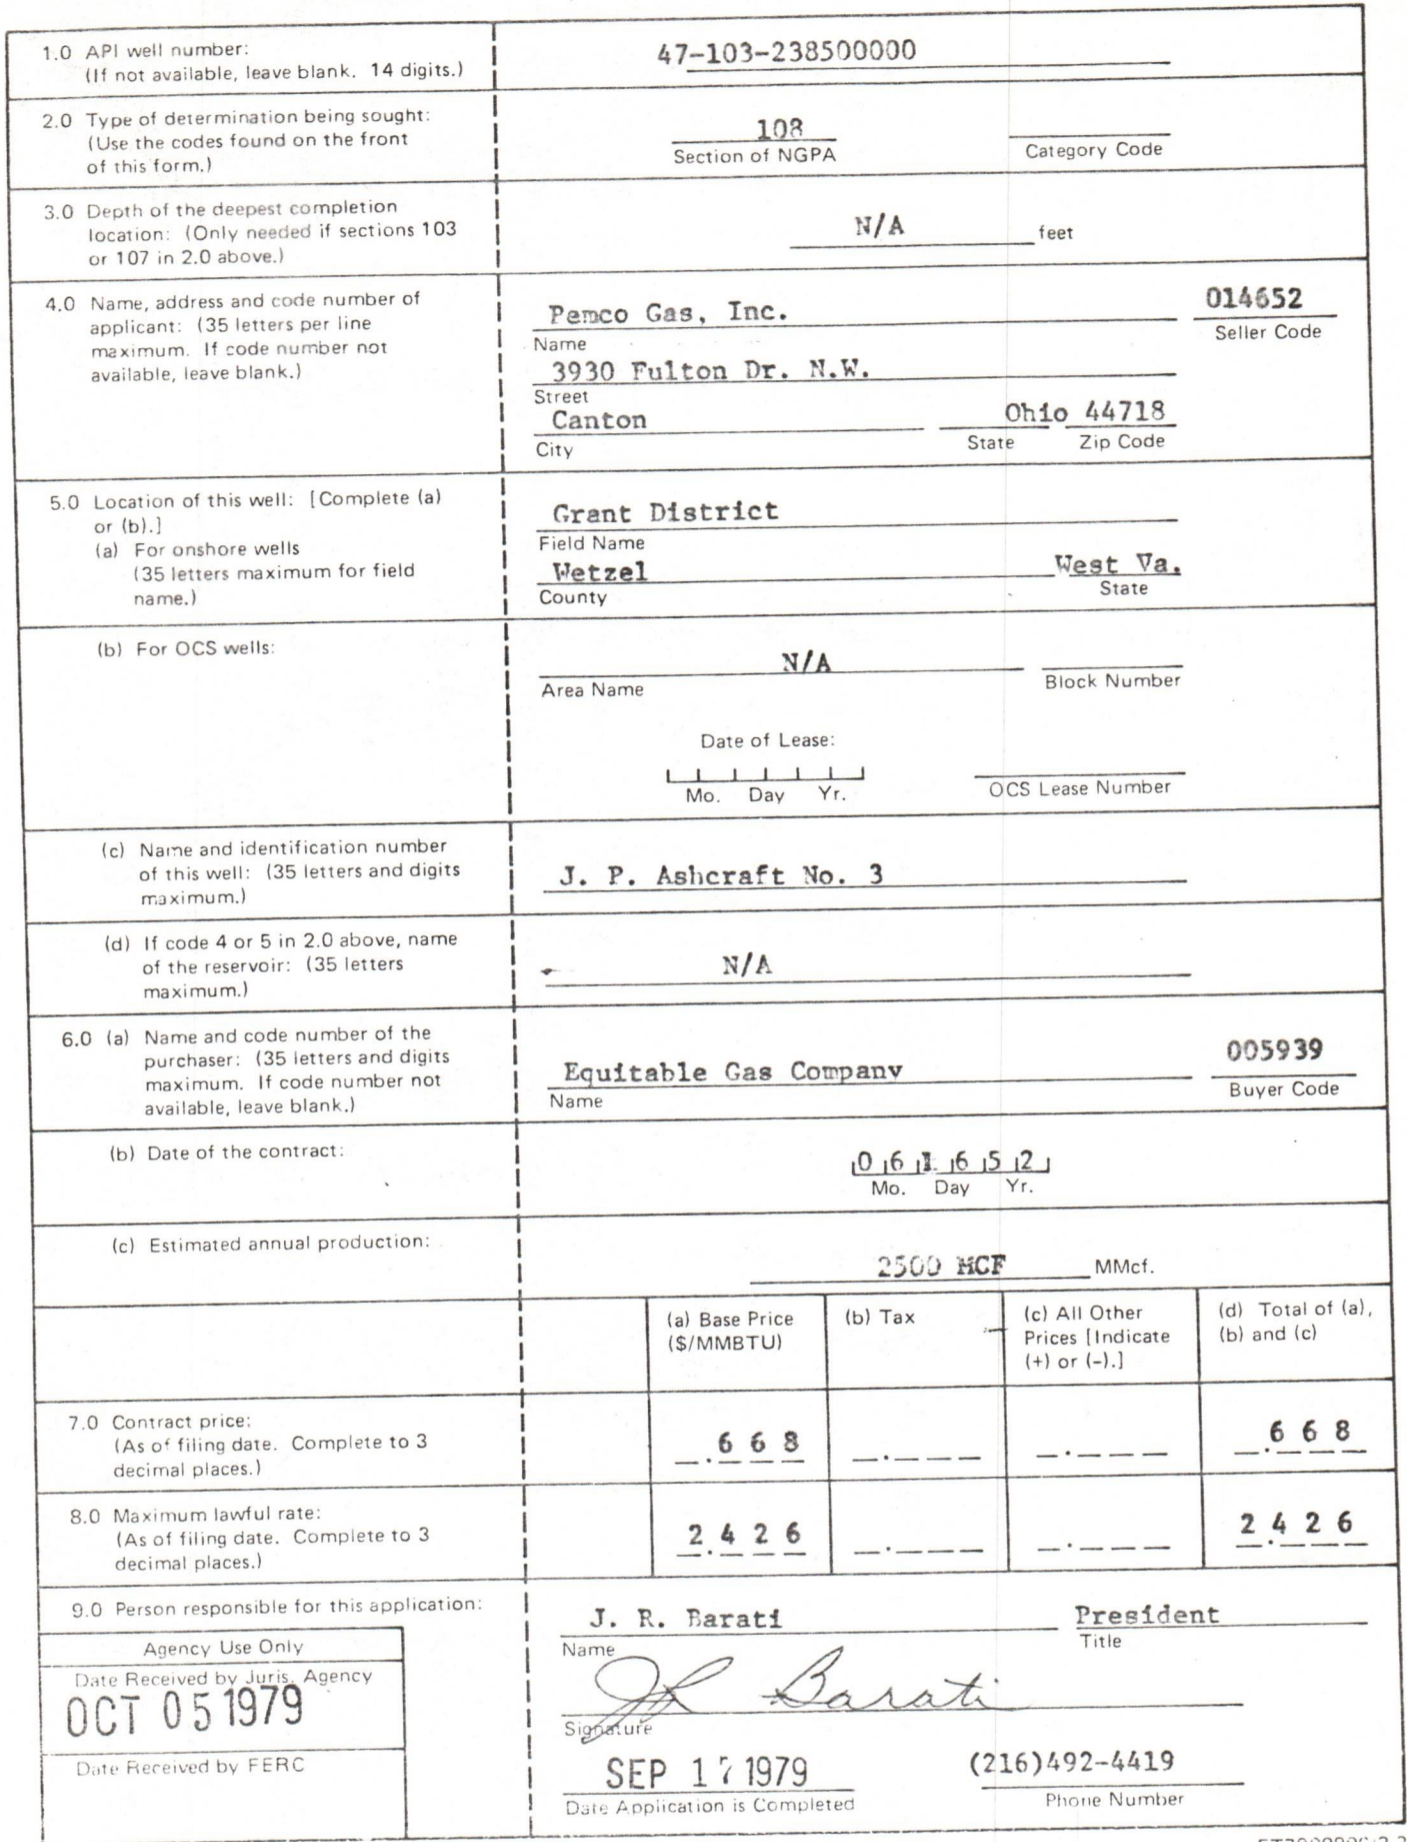 1.0 API well number:
(If not available, leave blank. 14 digits.)
47-103-238500000
2.0 Type of determination being sought:
(Use the codes found on the front
of this form.)
108
Section of NGPA
Category Code
3.0 Depth of the deepest completion
location: (Only needed if sections 103
or 107 in 2.0 above.)
N/A feet
4.0 Name, address and code number of
applicant: (35 letters per line
maximum. If code number not
available, leave blank.)
Pemco Gas, Inc.
014652
Name
Seller Code
3930 Fulton Dr. N.W.
Street
Canton Ohio 44718
City State Zip Code
5.0 Location of this well: [Complete (a)
or (b).]
(a) For onshore wells
(35 letters maximum for field
name.)
Grant District
Field Name
Wetzel West Va.
County State
(b) For OCS wells:
N/A
Area Name Block Number
Date of Lease:
Mo. Day Yr. OCS Lease Number
(c) Name and identification number
of this well: (35 letters and digits
maximum.)
J. P. Ashcraft No. 3
(d) If code 4 or 5 in 2.0 above, name
of the reservoir: (35 letters
maximum.)
N/A
6.0 (a) Name and code number of the
purchaser: (35 letters and digits
maximum. If code number not
available, leave blank.)
Equitable Gas Company 005939
Name Buyer Code
(b) Date of the contract:
0 6 1 6 5 2
Mo. Day Yr.
(c) Estimated annual production:
2500 MCF MMcf.
(a) Base Price
($/MMBTU)
(b) Tax
(c) All Other
Prices [Indicate
(+) or (-).]
(d) Total of (a),
(b) and (c)
7.0 Contract price:
(As of filing date. Complete to 3
decimal places.)
. 6 6 8
. 6 6 8
8.0 Maximum lawful rate:
(As of filing date. Complete to 3
decimal places.)
2 . 4 2 6
2 . 4 2 6
9.0 Person responsible for this application:
J. R. Barati President
Name Title
Agency Use Only
Date Received by Juris. Agency
OCT 05 1979
Date Received by FERC
JR Barati
Signature
SEP 17 1979 (216)492-4419
Date Application is Completed Phone Number